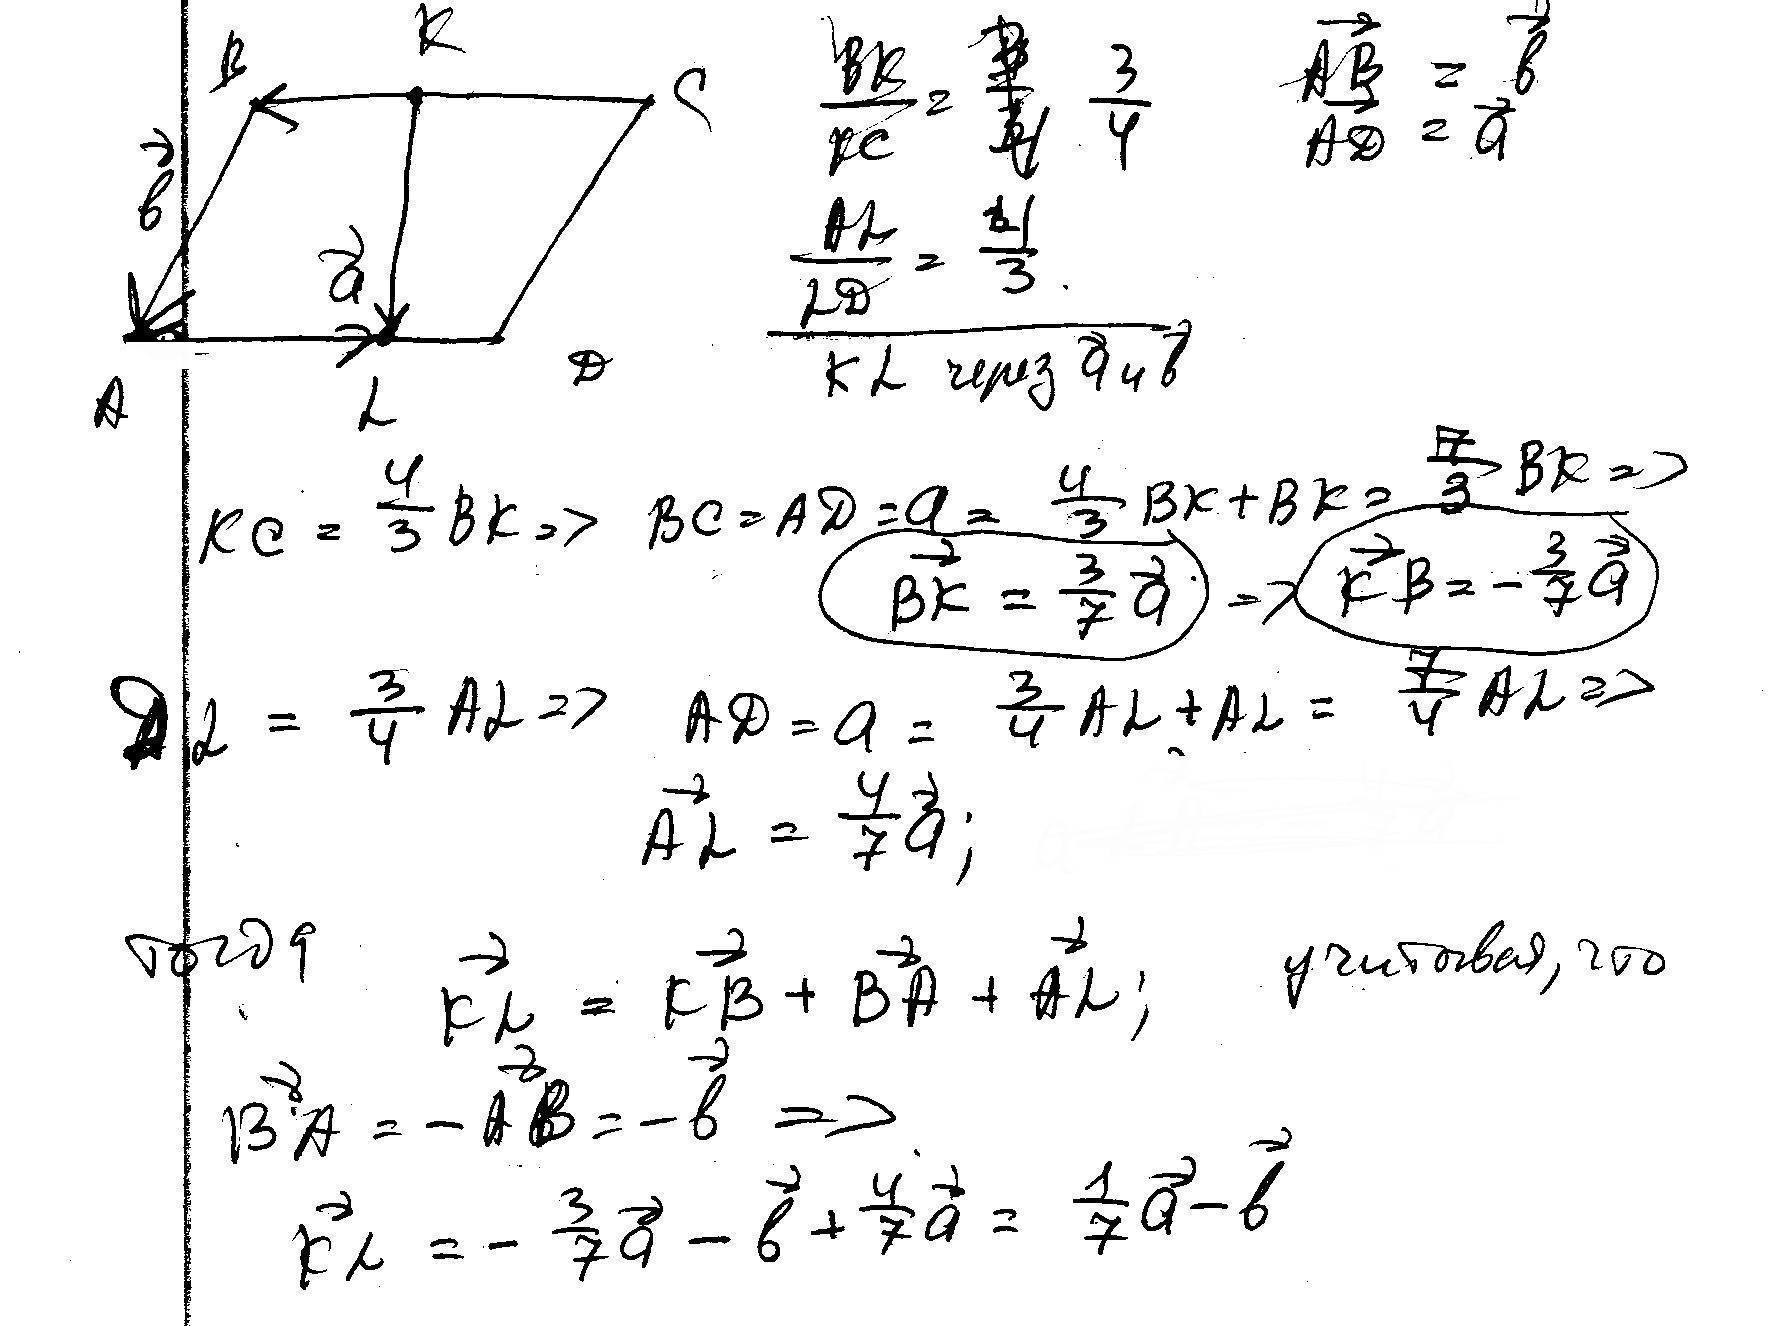 B K C
b⃗ a⃗
A L D
BK/KC = 3/4 AB⃗ = b⃗
AD⃗ = a⃗
AL/LD = 4/3.
KL через a⃗ и b⃗
KC = 4/3 BK => BC = AD = a = 4/3 BK + BK = 7/3 BK =>
BK⃗ = 3/7 a⃗ => KB⃗ = - 3/7 a⃗
DL = 3/4 AL => AD = a = 3/4 AL + AL = 7/4 AL =>
AL⃗ = 4/7 a⃗;
тогда KL⃗ = KB⃗ + BA⃗ + AL⃗; учитовая, что
BA⃗ = - AB⃗ = - b⃗ =>
KL⃗ = - 3/7 a⃗ - b⃗ + 4/7 a⃗ = 1/7 a⃗ - b⃗